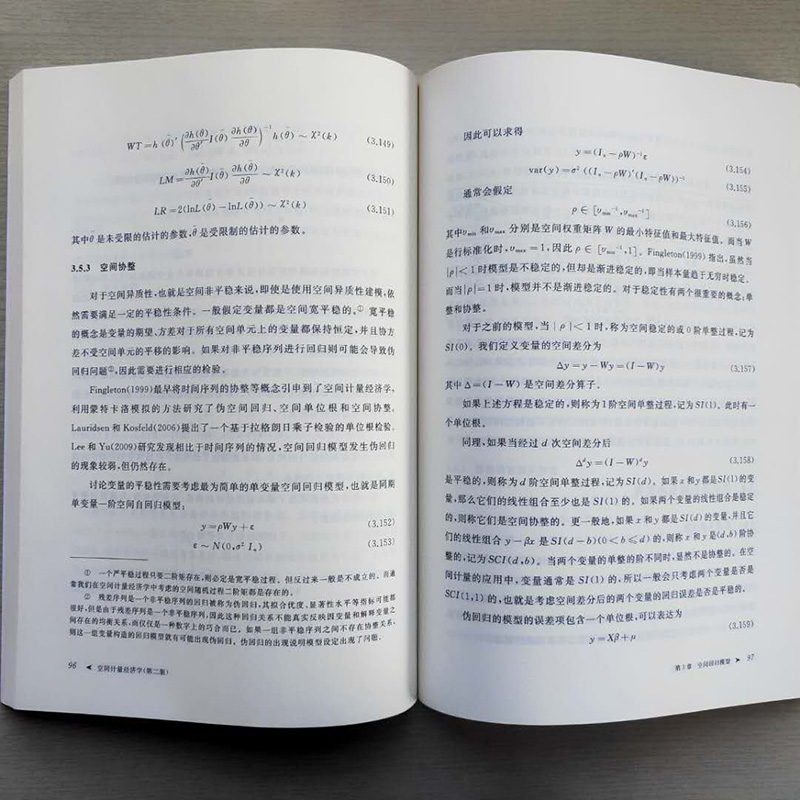 WT=h(θ̃)′(∂h(θ̃)/∂θ′ I(θ̃) ∂h(θ̃)/∂θ)⁻¹h(θ̃)～χ²(k) (3.149)
LM=∂h(θ̃)/∂θ′ I(θ̃) ∂h(θ̃)/∂θ～χ²(k) (3.150)
LR=2(lnL(θ̃)－lnL(θ̃))～χ²(k) (3.151)
其中θ̃是未受限的估计的参数,θ̃是受限制的估计的参数。
3.5.3 空间协整
对于空间异质性,也就是空间非平稳来说,即使是使用空间异质性建模,依
然需要满足一定的平稳性条件。一般假定变量都是空间宽平稳的。① 宽平稳
的概念是变量的期望、方差对于所有空间单元上的变量都保持恒定,并且协方
差不受空间单元的平移的影响。如果对非平稳序列进行回归则可能会导致伪
回归问题②,因此需要进行相应的检验。
Fingleton(1999)最早将时间序列的协整等概念引申到了空间计量经济学,
利用蒙特卡洛模拟的方法研究了伪空间回归、空间单位根和空间协整。
Lauridsen 和 Kosfeld(2006)提出了一个基于拉格朗日乘子检验的单位根检验。
Lee 和 Yu(2009)研究发现相比于时间序列的情况,空间回归模型发生伪回归
的现象较弱,但仍然存在。
讨论变量的平稳性需要考虑最为简单的单变量空间回归模型,也就是同期
单变量一阶空间自回归模型:
y=ρWy+ε (3.152)
ε～N(0,σ² Iₙ) (3.153)
① 一个严平稳过程只要二阶矩存在,则必定是宽平稳过程。但反过来一般是不成立的。在通
常我们在空间计量经济学中考虑的空间随机过程二阶矩都是存在的。
② 残差序列是一个非平稳序列的回归被称为伪回归,其拟合优度、显著性水平等指标可能都
很好,但是由于残差序列是一个非平稳序列,因此这种回归关系不能真实反映因变量和解释变量之
间存在的均衡关系,而仅仅是一种数字上的巧合而已。如果一组非平稳序列之间不存在协整关系,
则这一组变量构造的回归模型就有可能出现伪回归。伪回归的出现说明模型设定出现了问题。
96 ◄ 空间计量经济学(第二版)
因此可以求得
y=(Iₙ－ρW)⁻¹ε (3.154)
var(y)=σ² ((Iₙ－ρW)′(Iₙ－ρW))⁻¹ (3.155)
通常会假定
ρ∈[υmin⁻¹,υmax⁻¹] (3.156)
其中υmin和υmax分别是空间权重矩阵 W 的最小特征值和最大特征值。而当 W
是行标准化时,υmax=1,因此 ρ∈[υmin⁻¹,1]。Fingleton(1999)指出,虽然当
|ρ|<1时模型是不稳定的,但却是渐进稳定的,即当样本量趋于无穷时稳定。
而当|ρ|=1时,模型并不是渐进稳定的。对于稳定性有两个很重要的概念:单
整和协整。
对于之前的模型,当|ρ|<1时,称为空间稳定的或0阶单整过程,记为
SI(0)。我们定义变量的空间差分为
Δy=y－Wy=(I－W)y (3.157)
其中 Δ=(I－W)是空间差分算子。
如果上述方程是稳定的,则称为1阶空间单整过程,记为SI(1)。此时有一
个单位根。
同理,如果当经过 d 次空间差分后
Δᵈy=(I－W)ᵈy (3.158)
是平稳的,则称为 d 阶空间单整过程,记为SI(d)。如果 x 和 y 都是SI(1)的变
量,那么它们的线性组合至少也是 SI(1)的。如果两个变量的线性组合是稳定
的,则称它们是空间协整的。更一般地,如果 x 和 y 都是 SI(d)的变量,并且它
们的线性组合 y－βx 是 SI(d－b)(0<b≤d)的,则称 x 和 y 是(d,b)阶协
整的,记为SCI(d,b)。当两个变量的单整的阶不同时,显然不是协整的。在空
间计量的应用中,变量通常是 SI(1)的,所以一般会只考虑两个变量是否是
SCI(1,1)的,也就是考虑空间差分后的两个变量的回归误差是否是平稳的。
伪回归的模型的误差项包含一个单位根,可以表达为
y=Xβ+μ (3.159)
第3章 空间回归模型 ► 97